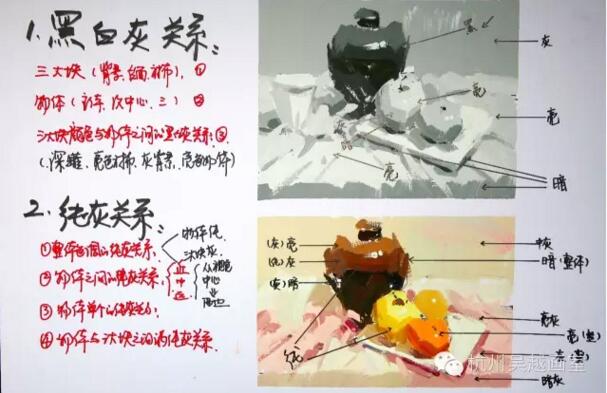 1.黑白灰关系:
三大块(背景、台面、衬布)、①
物体(　　中心、三)②
三大块颜色与物体之间的黑白灰关系:③
(深罐、亮色衬布、灰背景、　　物体)
2.纯灰关系:
①整体画面的纯灰关系、
物体纯
三大块灰
②物体之间的纯灰关系、
近
中
远
从视觉
中心
业
周边
③物体单个的纯灰关系:
④物体与三大块之间的纯灰关系
黑
灰
亮
亮
灰
亮
暗
(灰)亮
(纯)灰
(灰)暗
纯
中灰
暗(整体)
亮灰
亮
暗灰
杭州吴越画室